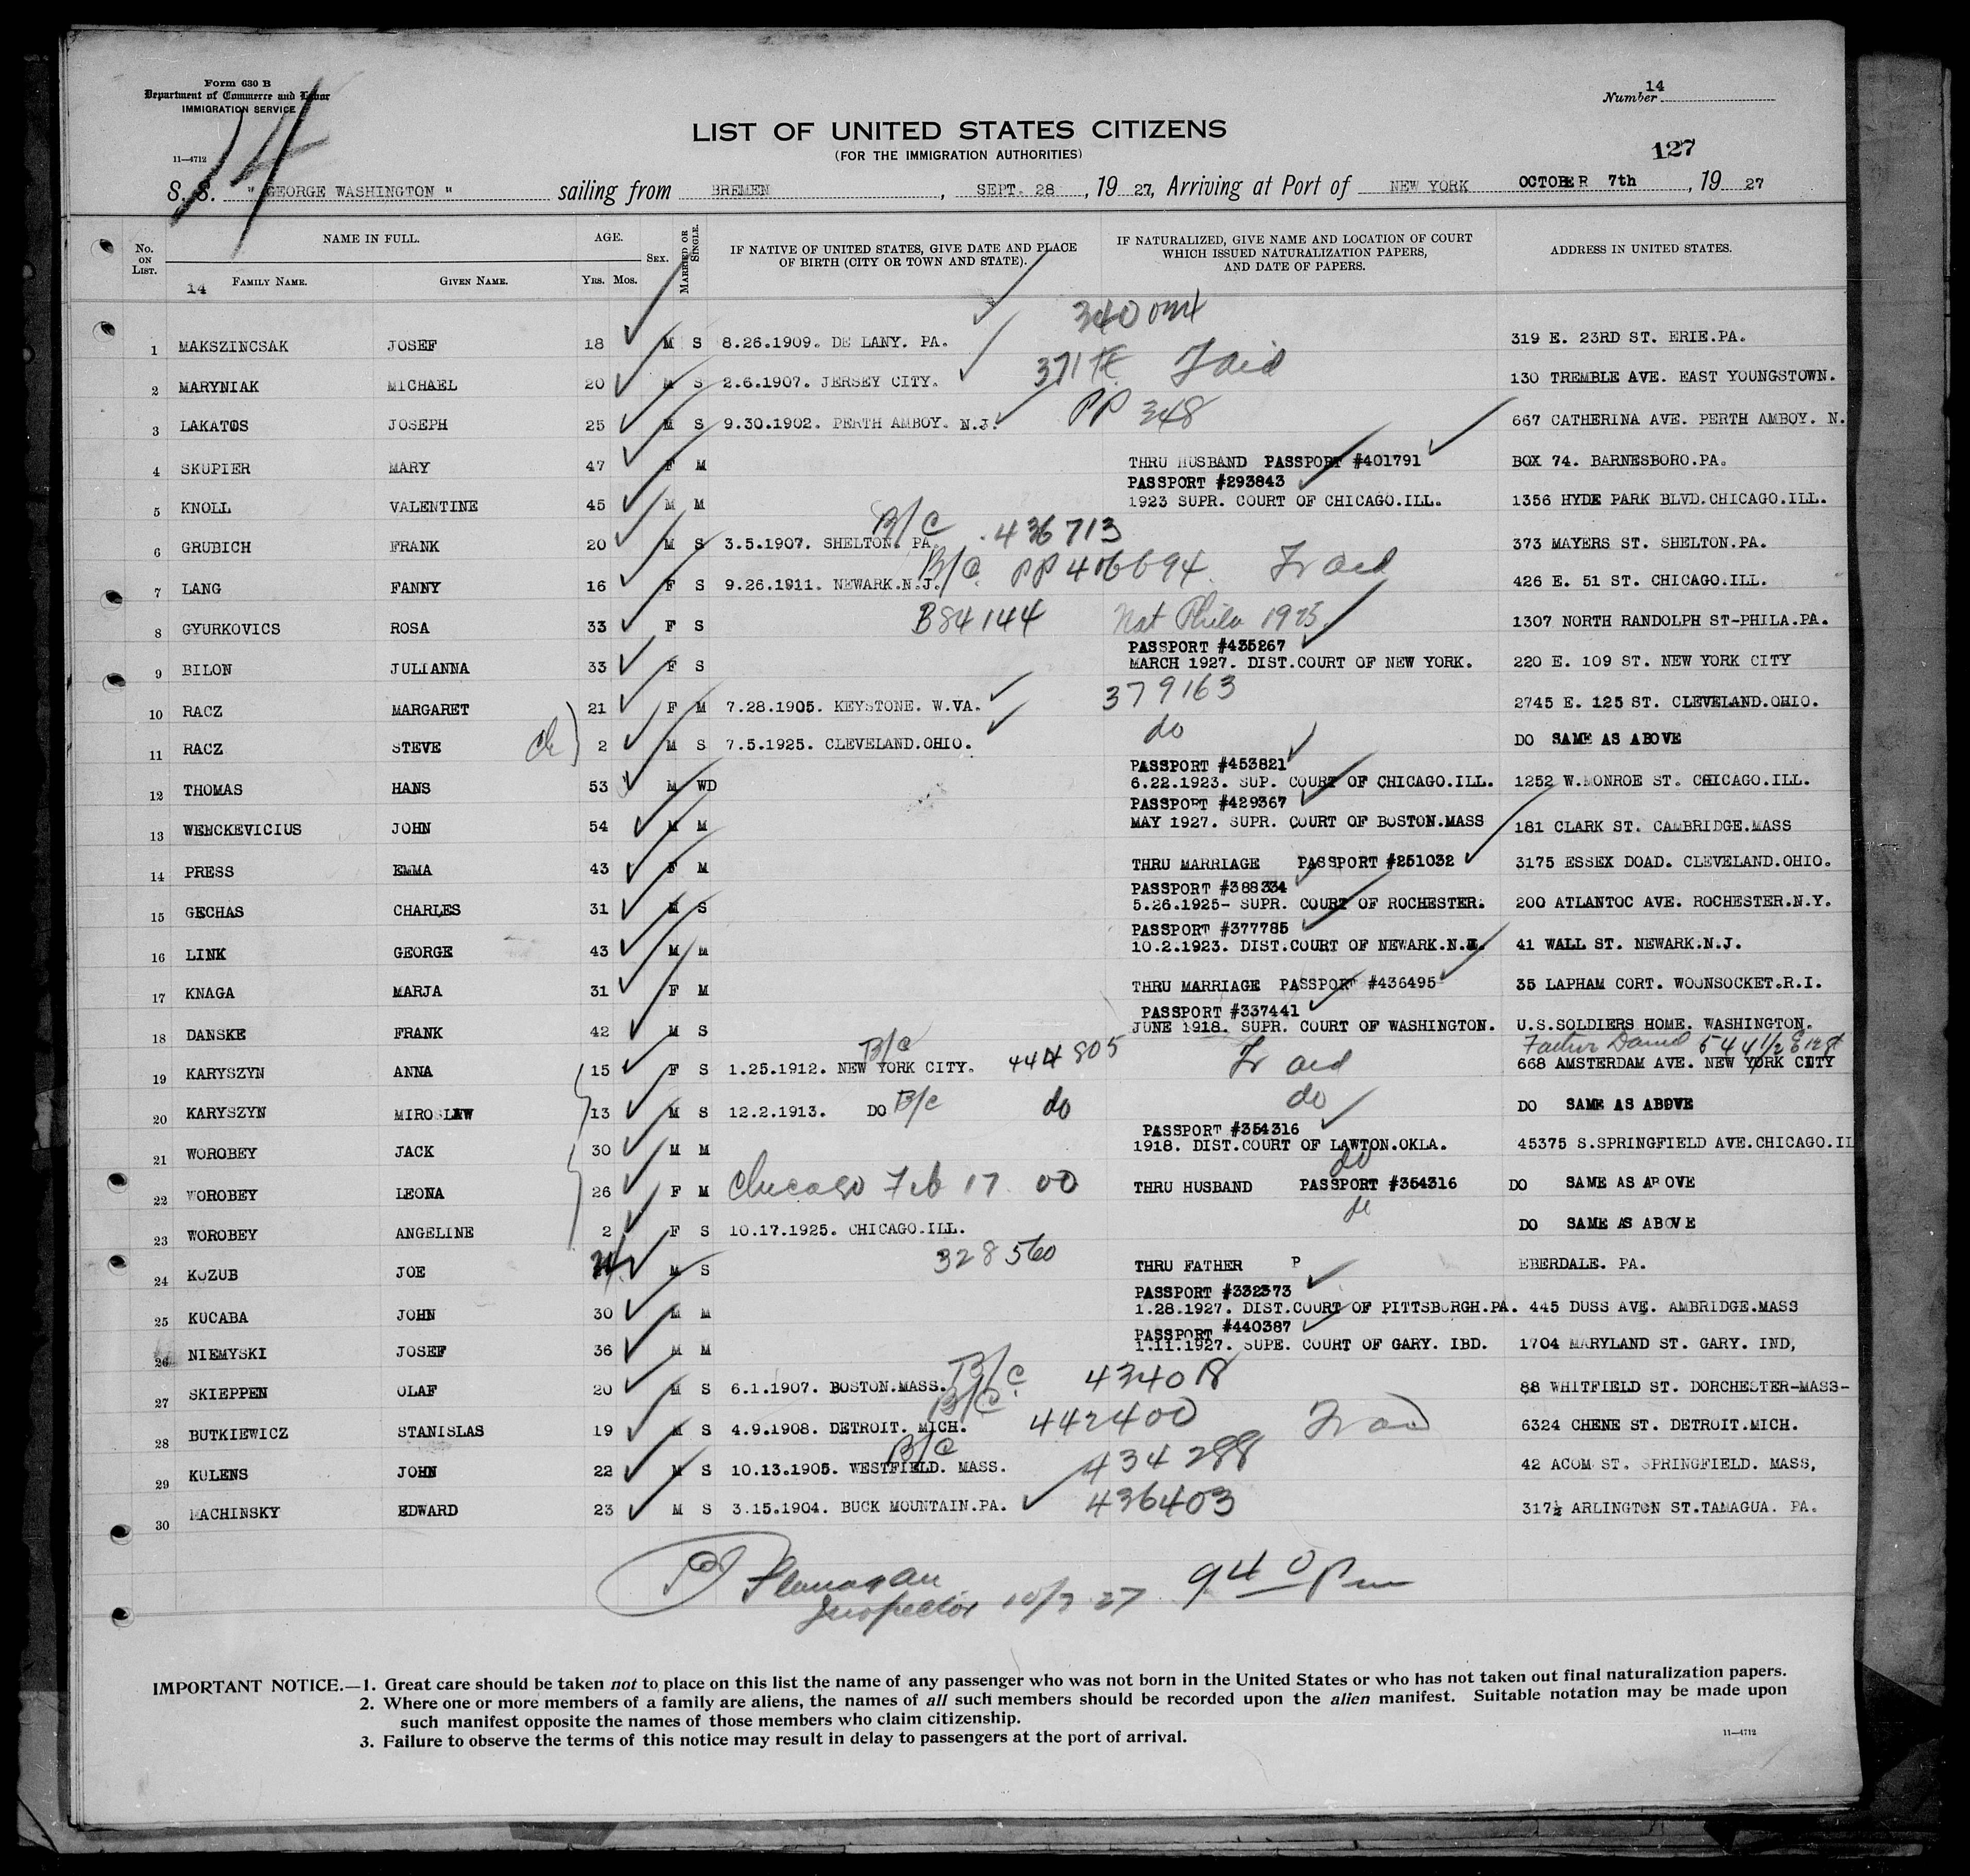 Form 630 B
Department of Commerce and Labor
IMMIGRATION SERVICE
14
11—4712
Number 14
LIST OF UNITED STATES CITIZENS
(FOR THE IMMIGRATION AUTHORITIES)
127
S. S. " GEORGE WASHINGTON " sailing from BREMEN, SEPT. 28, 19 27, Arriving at Port of NEW YORK OCTOBER 7th, 19 27
No. ON LIST. NAME IN FULL. AGE. SEX. MARRIED OR SINGLE. IF NATIVE OF UNITED STATES, GIVE DATE AND PLACE OF BIRTH (CITY OR TOWN AND STATE). IF NATURALIZED, GIVE NAME AND LOCATION OF COURT WHICH ISSUED NATURALIZATION PAPERS, AND DATE OF PAPERS. ADDRESS IN UNITED STATES.
14 FAMILY NAME. GIVEN NAME. YRS. MOS.
1 MAKSZINCSAK JOSEF 18 M S 8.26.1909. DE LANY. PA. 319 E. 23RD ST. ERIE.PA.
2 MARYNIAK MICHAEL 20 M S 2.6.1907. JERSEY CITY. 130 TREMBLE AVE. EAST YOUNGSTOWN.
3 LAKATOS JOSEPH 25 M S 9.30.1902. PERTH AMBOY. N.J. PP 348 667 CATHERINA AVE. PERTH AMBOY. N.
4 SKUPIER MARY 47 F M THRU HUSBAND PASSPORT #401791 BOX 74. BARNESBORO.PA.
PASSPORT #293843
5 KNOLL VALENTINE 45 M M 1923 SUPR. COURT OF CHICAGO.ILL. 1356 HYDE PARK BLVD.CHICAGO.ILL.
B/C 436713
6 GRUBICH FRANK 20 M S 3.5.1907. SHELTON. PA. 373 MAYERS ST. SHELTON.PA.
B/C PP 406694
7 LANG FANNY 16 F S 9.26.1911. NEWARK.N.J. 426 E. 51 ST. CHICAGO.ILL.
8 GYURKOVICS ROSA 33 F S B84144 Nat Phila 1925 1307 NORTH RANDOLPH ST-PHILA.PA.
PASSPORT #435267
9 BILON JULIANNA 33 F S MARCH 1927. DIST.COURT OF NEW YORK. 220 E. 109 ST. NEW YORK CITY
10 RACZ MARGARET 21 F M 7.28.1905. KEYSTONE. W.VA. 379163 2745 E. 125 ST. CLEVELAND.OHIO.
11 RACZ STEVE ch 2 M S 7.5.1925. CLEVELAND.OHIO. do DO SAME AS ABOVE
PASSPORT #453821
12 THOMAS HANS 53 M WD 6.22.1923. SUP. COURT OF CHICAGO.ILL. 1252 W.MONROE ST. CHICAGO.ILL.
PASSPORT #429367
13 WENCKEVICIUS JOHN 54 M M MAY 1927. SUPR. COURT OF BOSTON.MASS 181 CLARK ST. CAMBRIDGE.MASS
14 PRESS EMMA 43 F M THRU MARRIAGE PASSPORT #251032 3175 ESSEX DOAD. CLEVELAND.OHIO.
PASSPORT #388334
15 GECHAS CHARLES 31 M S 5.26.1925- SUPR. COURT OF ROCHESTER. 200 ATLANTOC AVE. ROCHESTER.N.Y.
PASSPORT #377785
16 LINK GEORGE 43 M M 10.2.1923. DIST.COURT OF NEWARK.N.J. 41 WALL ST. NEWARK.N.J.
17 KNAGA MARJA 31 F M THRU MARRIAGE PASSPORT #436495 35 LAPHAM CORT. WOONSOCKET.R.I.
PASSPORT #337441
18 DANSKE FRANK 42 M S JUNE 1918. SUPR. COURT OF WASHINGTON. U.S.SOLDIERS HOME. WASHINGTON.
B/C 444805 Father
19 KARYSZYN ANNA 15 F S 1.25.1912. NEW YORK CITY. 668 AMSTERDAM AVE. NEW YORK CITY
20 KARYSZYN MIROSLAW 13 M S 12.2.1913. DO B/C do do DO SAME AS ABOVE
PASSPORT #354316
21 WOROBEY JACK 30 M M 1918. DIST.COURT OF LAWTON.OKLA. 45375 S.SPRINGFIELD AVE.CHICAGO.IL
do
22 WOROBEY LEONA 26 F M Chicago Feb 17 00 THRU HUSBAND PASSPORT #354316 DO SAME AS ABOVE
do
23 WOROBEY ANGELINE 2 F S 10.17.1925. CHICAGO.ILL. DO SAME AS ABOVE
328560
24 KOZUB JOE M S THRU FATHER P EBERDALE. PA.
PASSPORT #332373
25 KUCABA JOHN 30 M M 1.28.1927. DIST.COURT OF PITTSBURGH.PA. 445 DUSS AVE. AMBRIDGE.MASS
PASSPORT #440387
26 NIEMYSKI JOSEF 36 M M 1.11.1927. SUPE. COURT OF GARY. IBD. 1704 MARYLAND ST. GARY. IND,
B/C
27 SKIEPPEN OLAF 20 M S 6.1.1907. BOSTON.MASS. 88 WHITFIELD ST. DORCHESTER-MASS-
B/C 442400
28 BUTKIEWICZ STANISLAS 19 M S 4.9.1908. DETROIT. MICH. 6324 CHENE ST. DETROIT.MICH.
B/C 434288
29 KULENS JOHN 22 M S 10.13.1905. WESTFIELD. MASS. 42 ACOM ST. SPRINGFIELD. MASS,
30 MACHINSKY EDWARD 23 M S 3.15.1904. BUCK MOUNTAIN.PA. 436403 317½ ARLINGTON ST.TAMAGUA. PA.
Flanagan 940 Pm
Inspector 10/7 27
IMPORTANT NOTICE.—1. Great care should be taken not to place on this list the name of any passenger who was not born in the United States or who has not taken out final naturalization papers.
2. Where one or more members of a family are aliens, the names of all such members should be recorded upon the alien manifest. Suitable notation may be made upon
such manifest opposite the names of those members who claim citizenship.
3. Failure to observe the terms of this notice may result in delay to passengers at the port of arrival.
11—4712